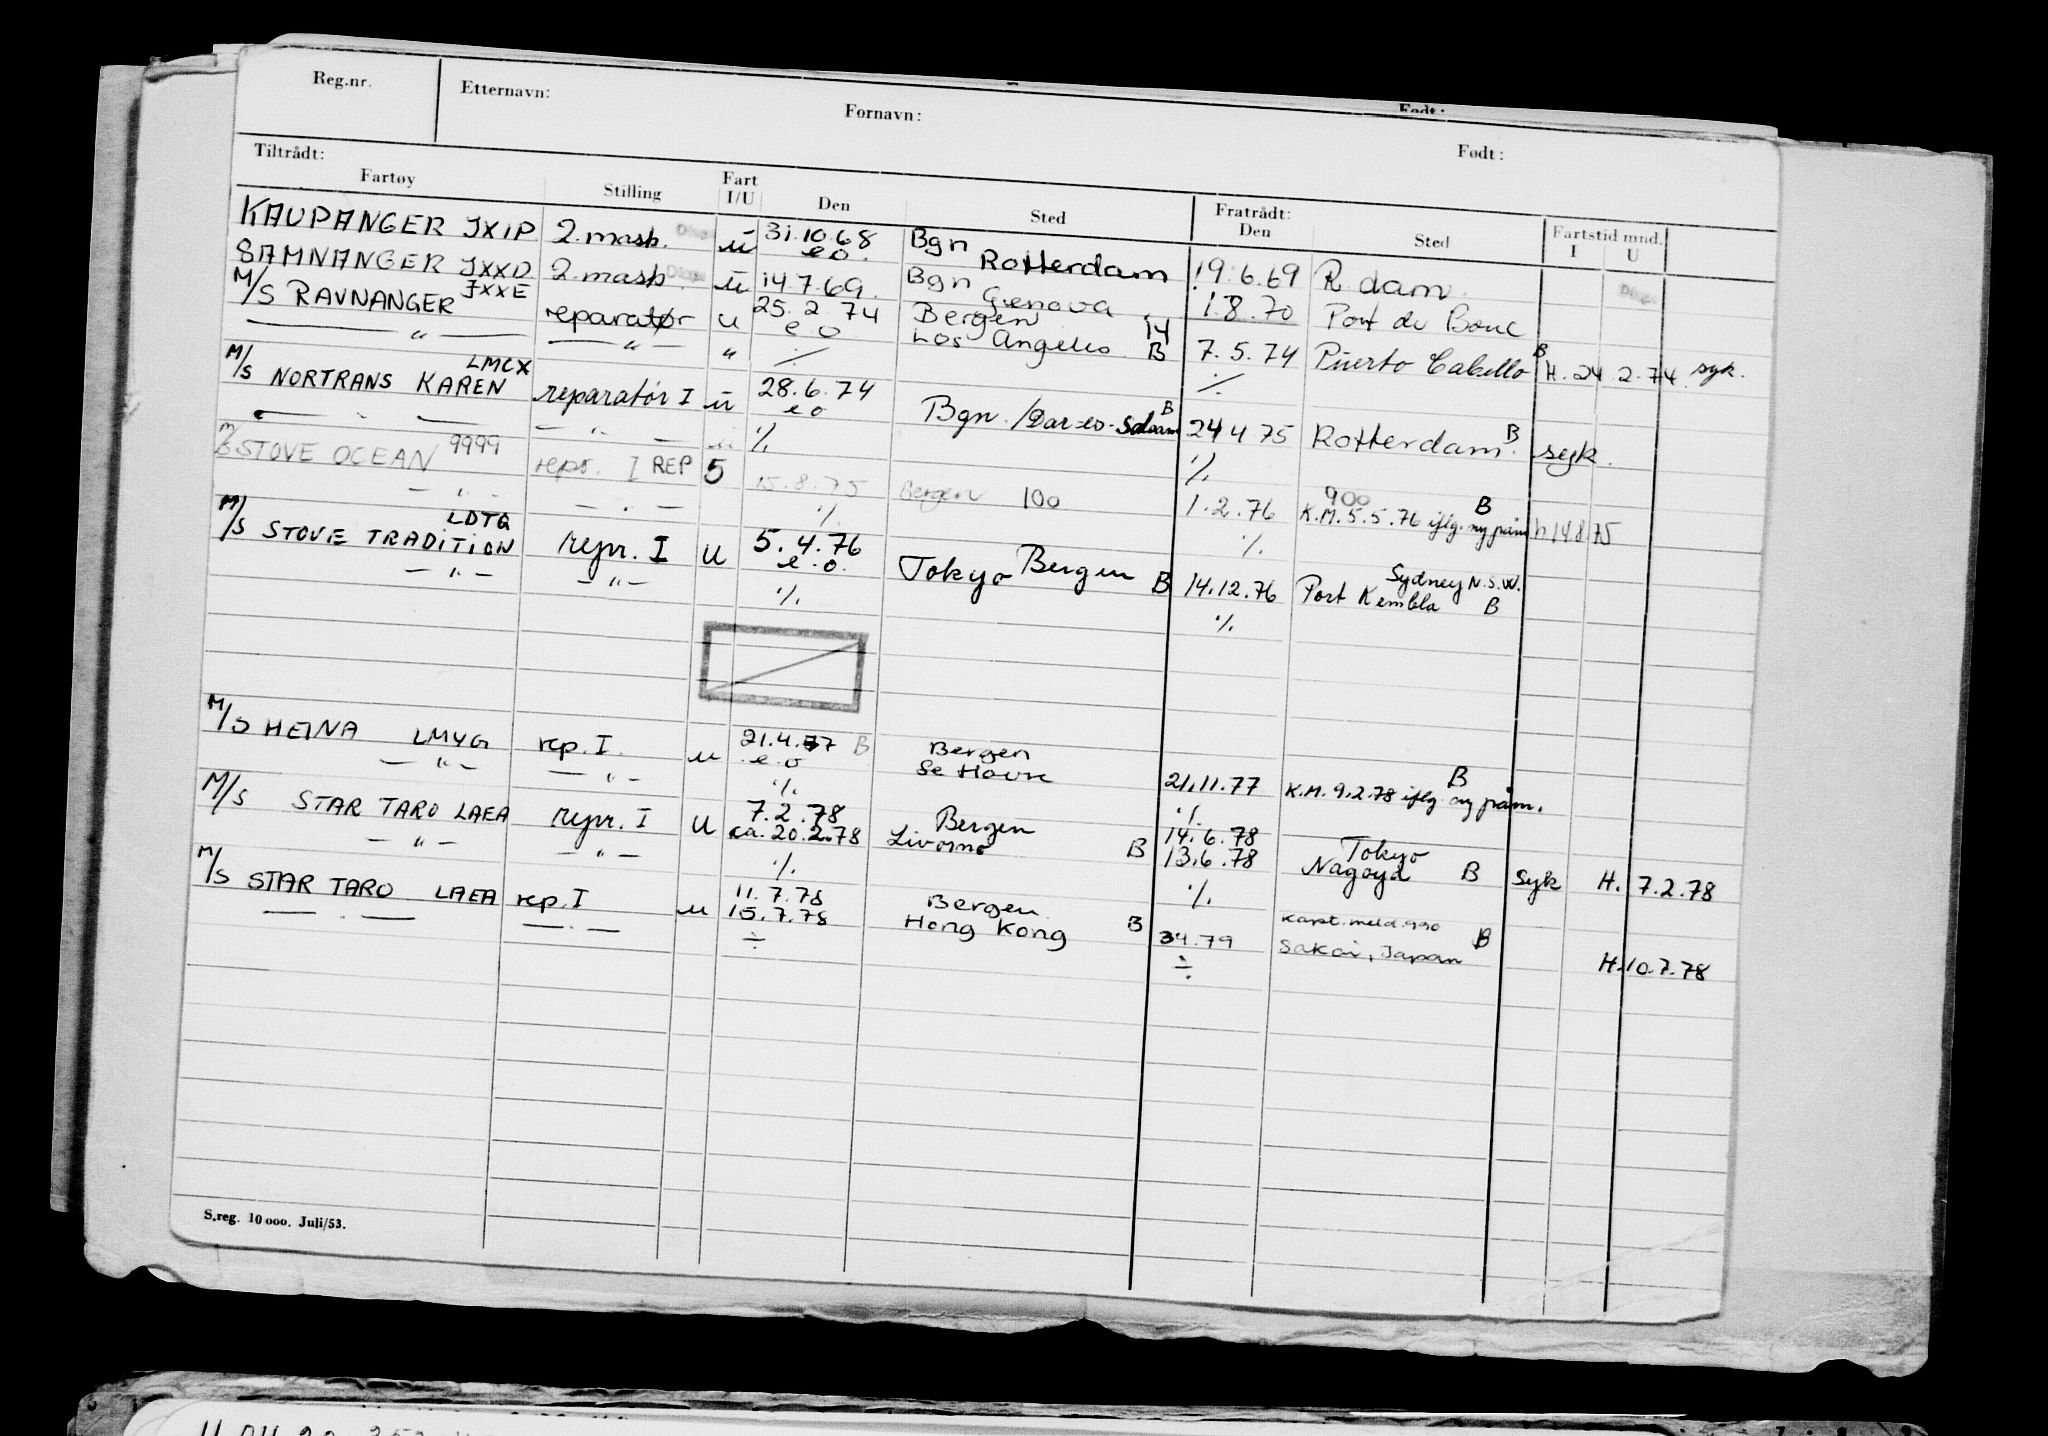 Reg.nr. Etternavn: Fornavn: Født:
Født:
Tiltrådt: Fratrådt:
Fartøy Stilling Fart I/U Den Sted Den Sted Fartstid mnd. I U
KAUPANGER JXIP 2. mask. u 31.10.68 Bgn
e o. Rotterdam 19.6.69 R.dam
SAMNANGER JXXD 2. mask. u 14.7.69. Bgn
Genova 1.8.70 Port de Bouc
M/S RAVNANGER JXXE reparatør u 25.2.74 Bergen 14
— " — — " — " e o Los Angeles B 7.5.74 Puerto Cabello B H. 24 2.74. syk.
M/S NORTRANS KAREN LMCX reparatør I u 28.6.74 ⁒
e o Bgn. /Dar-es-Salaam B 24 4 75 Rotterdam B syk.
— " — — " — ⁒ ⁒
M/S STOVE OCEAN 9999 repr. I REP 5 15.8.75 Bergen 100 1.2.76 900 B
— " — — " — ⁒ K.M. 5.5.76 iflg. ny påm h 14 8 75
M/S STOVE TRADITION LDTQ repr. I U 5.4.76 Bergen ⁒
e.o. Tokyo B 14.12.76 Sydney N.S.W.
Port Kembla B
— " — — " — ⁒ ⁒
M/S HEINA LMYG rep. I. u 21.4.77 B Bergen
— " — — " — e.o Le Havre 21.11.77 B
⁒ K.M. 9.2.78 iflg. ny påm.
M/S STAR TARO LAEA repr. I U 7.2.78 Bergen ⁒
ca. 20.2.78 Livorno B 14.6.78 Tokyo
— " — — " — ⁒ 13.6.78 Nagoya B Syk H. 7.2.78
M/S STAR TARO LAEA rep. I u 11.7.78 Bergen ⁒
15.7.78 Hong Kong B kapt. meld. 990
— " — — " — ÷ 3 4.79 Sakai, Japan B H. 10.7.78
÷
S.reg. 10 000. Juli/53.